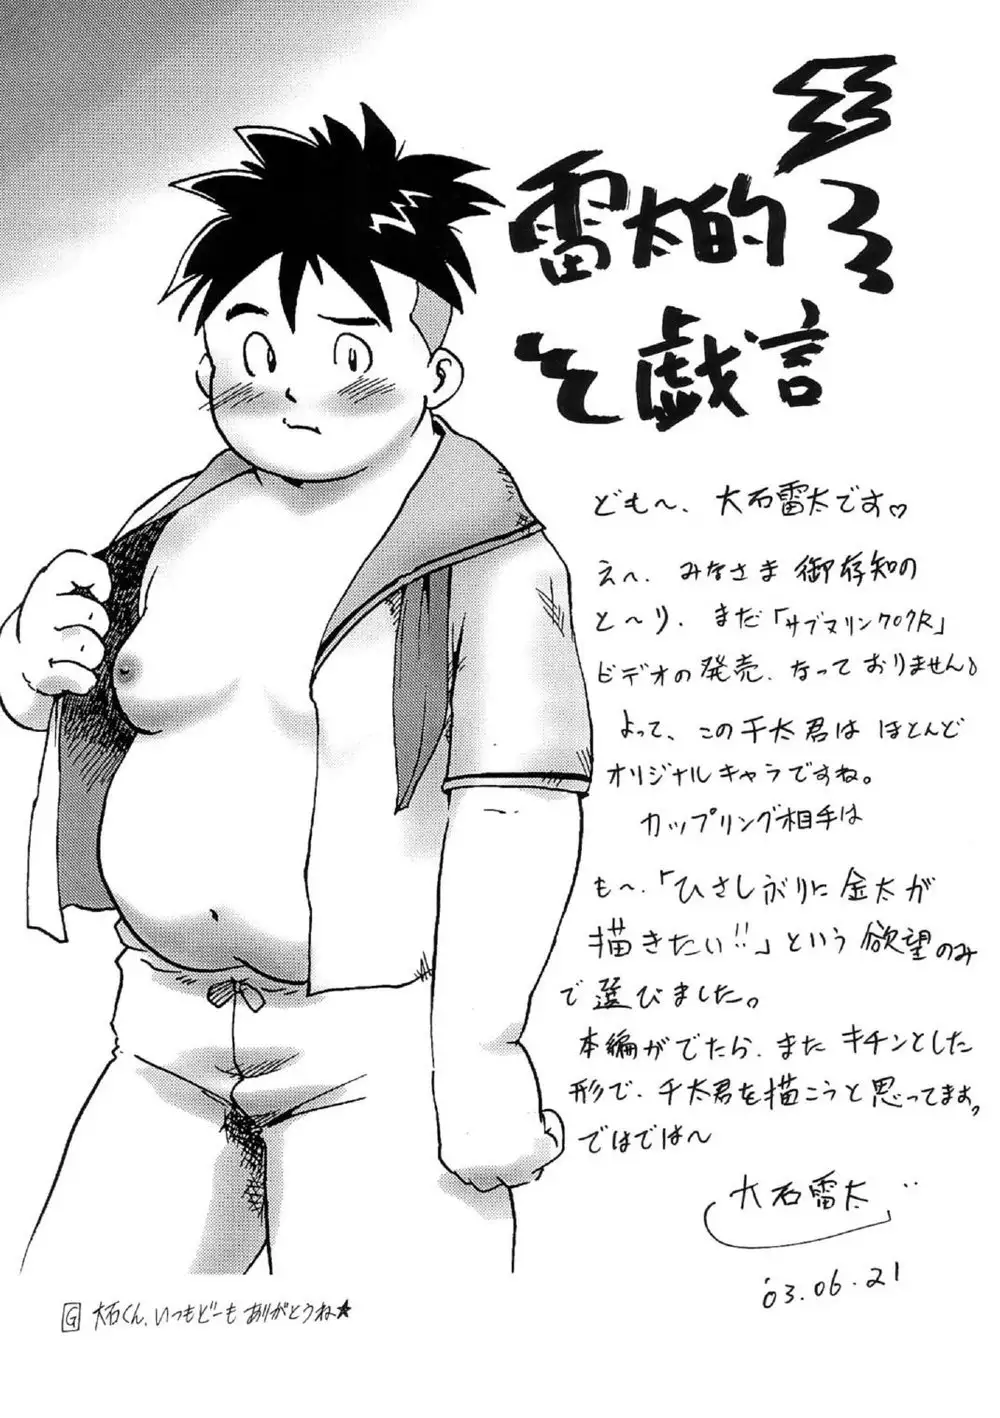 雷太的
そ戯言
ども〜、大石雷太です♡
え〜、みなさま御存知の
と〜り、まだ「サブマリンクロクR」
ビデオの発売、なっておりません♪
よって、この千太君はほとんど
オリジナルキャラですね。
カップリング相手は
も〜、「ひさしぶりに金太が
描きたい!!」という欲望のみ
で選びました。
本編がでたら、またキチンとした
形で、千太君を描こうと思ってます。
ではでは〜
大石雷太
'03.06.21
G 大石くん、いつもどーもありがとうね★